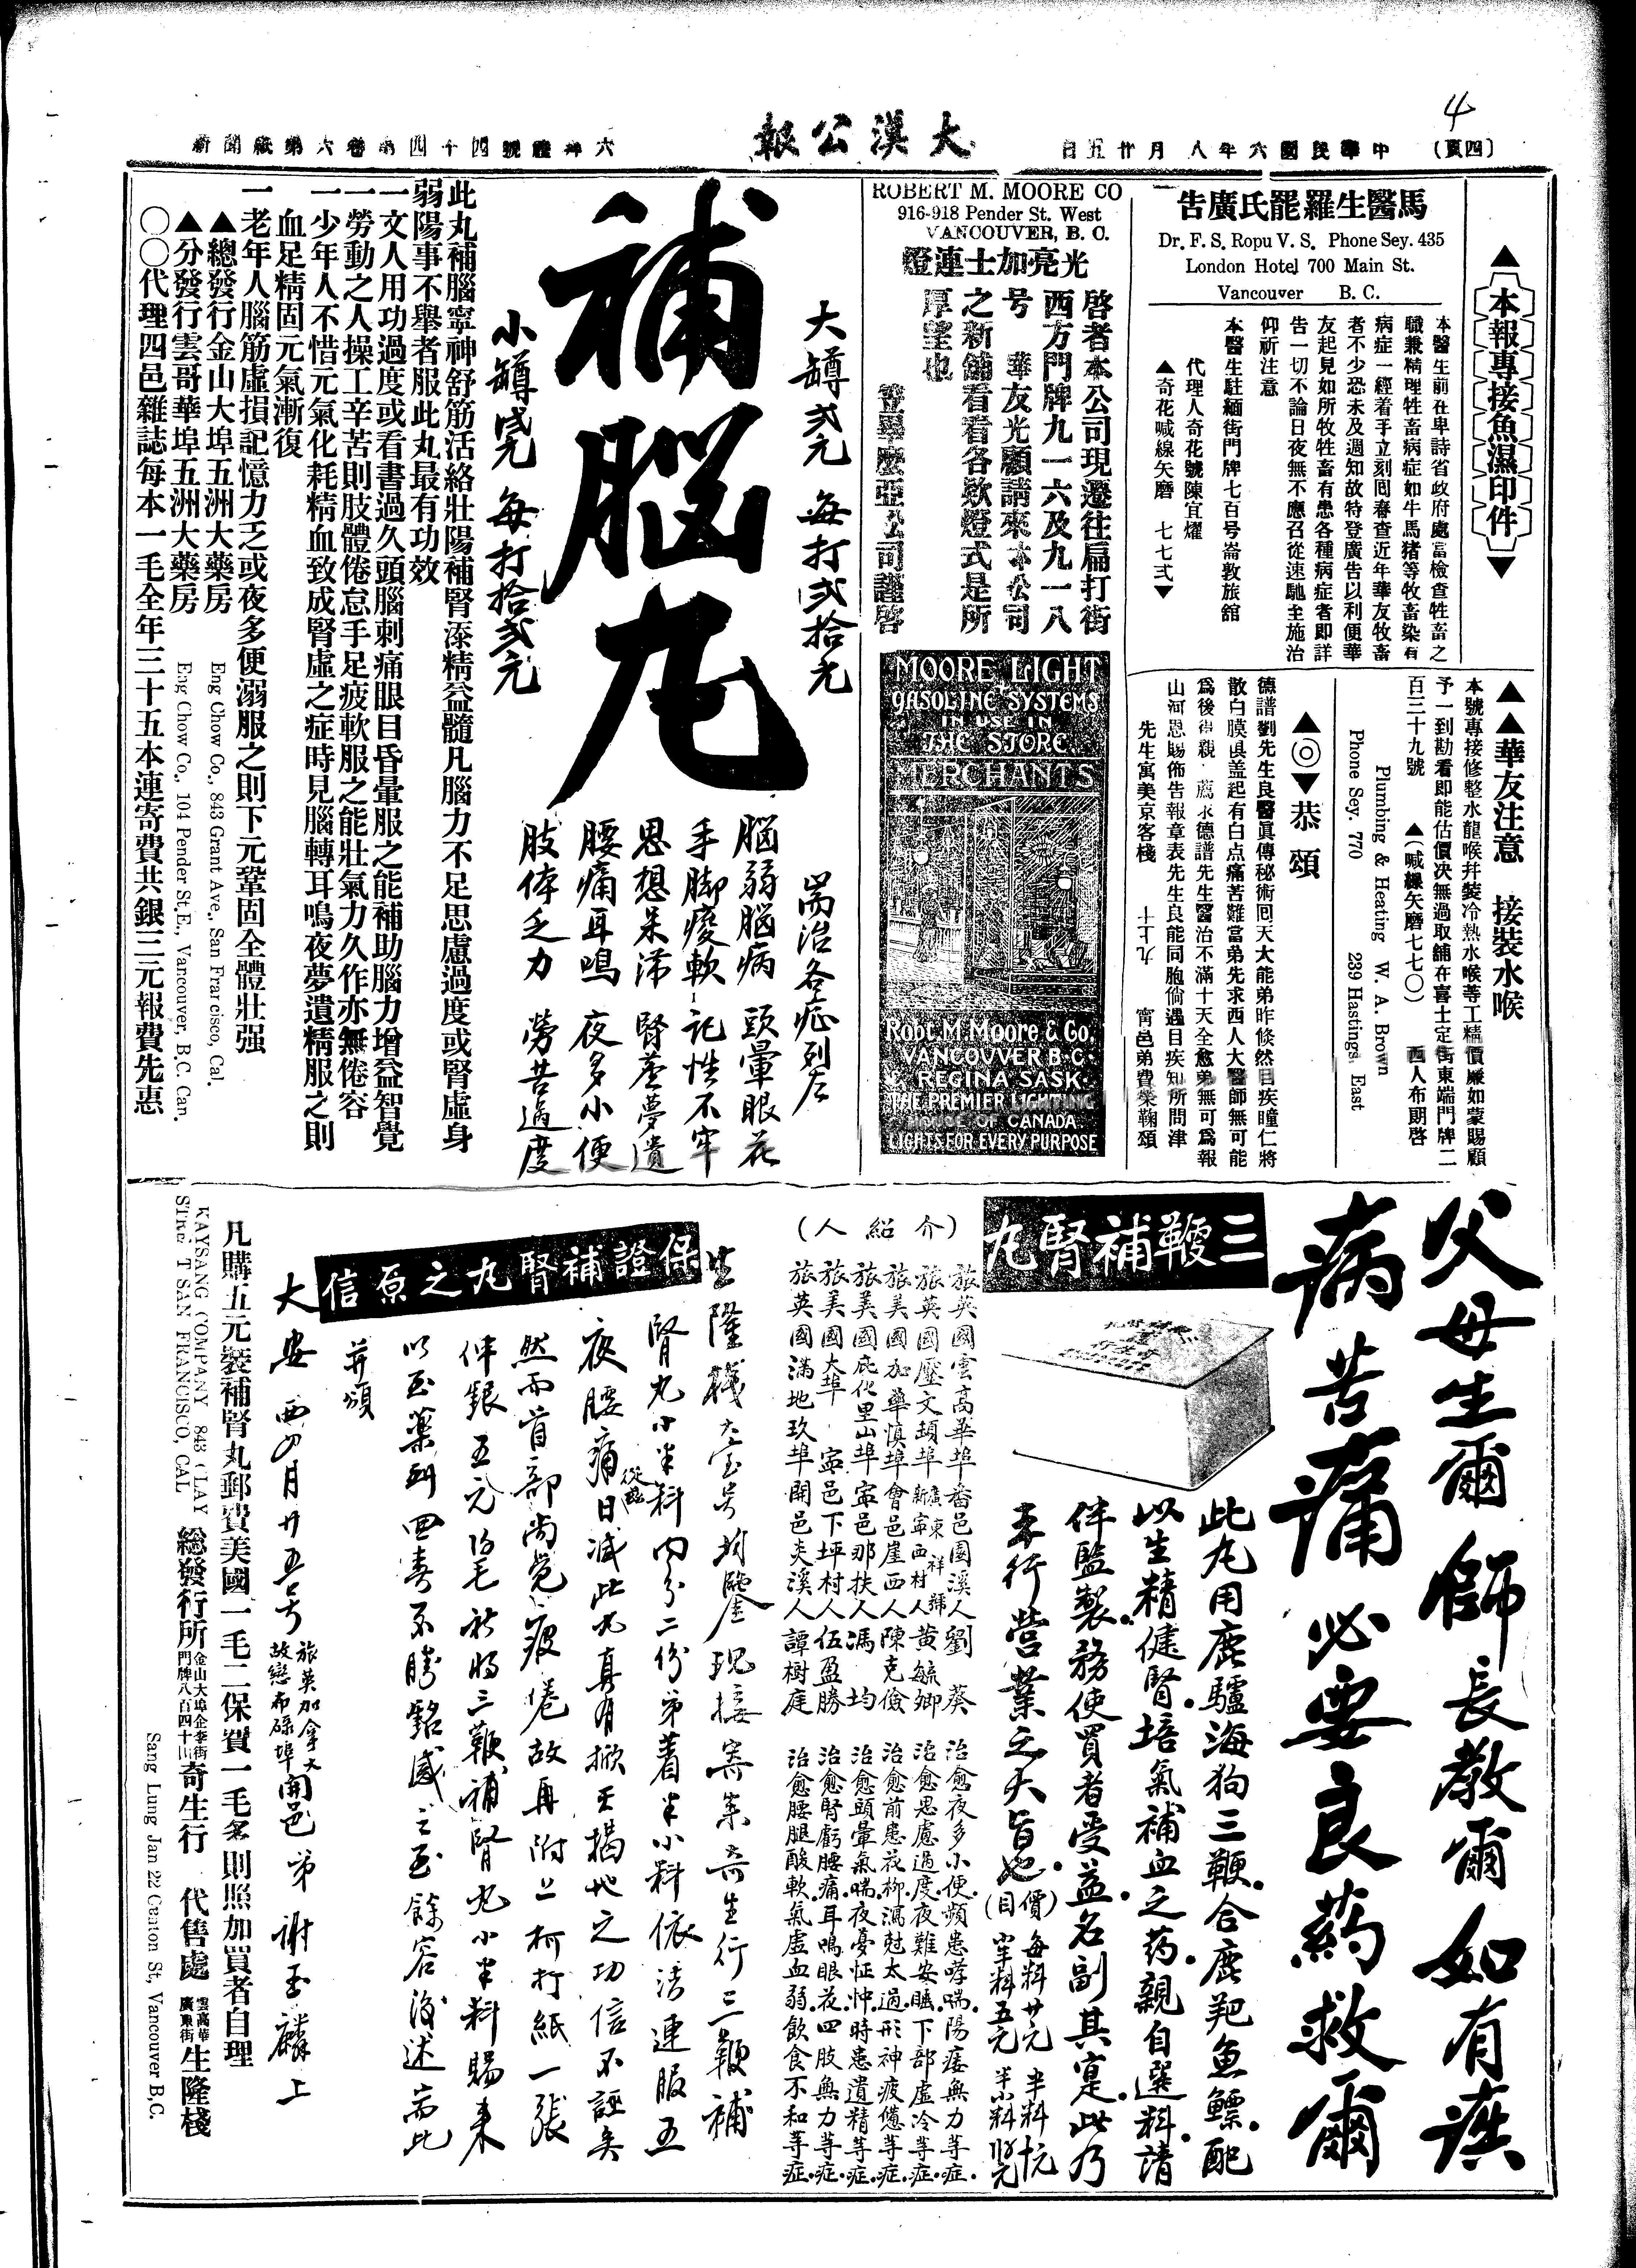 4
(四頁)
中華民國六年八月廿五日
大漢公報
新聞紙第六卷第四十四號禮拜六
▲本報專接魚濕印件▼
馬醫生羅罷氏廣告
Dr. F. S. Ropu V. S. Phone Sey. 435
London Hotel 700 Main St.
Vancouver B. C.
本醫生前在卑詩省政府處當檢查牲畜之
職兼精理牲畜病症如牛馬猪等牧畜染有
病症一經着手立刻囘春查近年華友牧畜
者不少恐未及週知故特登廣告以利便華
友起見如所牧牲畜有患各種病症者即詳
告一切不論日夜無不應召從速馳至施治
仰祈注意
本醫生駐緬街門牌七百号崙敦旅舘
代理人奇花號陳宜燿
▲奇花喊線矢磨 七七弍▼
▲▲華友注意 接裝水喉
本號專接修整水龍喉幷裝冷熱水喉等工精價廉如蒙賜顧
予一到勘看即能估價决無過取舖在喜士定街東端門牌二
百三十九號 ▲(喊線矢磨七七〇) 西人布朗啓
Plumbing & Heating W. A. Brown
Phone Sey. 770 239 Hastings East
▲◎▼恭頌
德譜劉先生良醫眞傳秘術囘天大能弟昨倐然目疾瞳仁將
散白膜俱盖起有白点痛苦難當弟先求西人大醫師無可能
爲後得親 薦永德譜先生醫治不滿十天全愈弟無可爲報
山河恩賜佈告報章表先生良能同胞倘遇目疾知所問津
先生寓美京客棧 九上十 寗邑弟費榮鞠頌
ROBERT M. MOORE CO
916-918 Pender St. West
VANCOUVER, B. C.
光亮加士連燈
啓者本公司現遷往扁打街
西方門牌九一六及九一八
号 華友光顧請來本公司
之新舖看看各欵燈式是所
厚望也
笠畢麽亞公司謹啓
MOORE LIGHT
GASOLINE SYSTEMS
IN USE IN
THE STORE
MERCHANTS
Robt. M. Moore & Co.
VANCOUVER B.C.
& REGINA SASK.
THE PREMIER LIGHTING
HOUSE OF CANADA
LIGHTS FOR EVERY PURPOSE
大罇弍元 每打弍拾元
補腦丸
小罇壹元 每打拾弍元
耑治各症列左
腦弱腦病 頭暈眼花
手脚痠軟 記性不牢
思想呆滯 腎虛夢遺
腰痛耳鳴 夜多小便
肢体乏力 勞苦過度
此丸補腦寧神舒筋活絡壯陽補腎添精益髓凡腦力不足思慮過度或腎虛身
弱陽事不舉者服此丸最有功效
一文人用功過度或看書過久頭腦刺痛眼目昏暈服之能補助腦力增益智覺
一勞動之人操工辛苦則肢體倦怠手足疲軟服之能壯氣力久作亦無倦容
一少年人不惜元氣化耗精血致成腎虛之症時見腦轉耳鳴夜夢遺精服之則
血足精固元氣漸復
一老年人腦筋虛損記憶力乏或夜多便溺服之則下元鞏固全體壯强
▲總發行金山大埠五洲大藥房
Eng Chow Co., 843 Grant Ave., San Francisco, Cal.
▲分發行雲哥華埠五洲大藥房
Eng Chow Co., 104 Pender St. E., Vancouver, B.C. Can.
〇〇代理四邑雜誌每本一毛全年三十五本連寄費共銀三元報費先惠
父母生爾 師長教爾 如有疾
病苦痛 必要良葯救爾
三鞭補腎丸
此丸用鹿驢海狗三鞭合鹿羓魚鰾配
以生精健腎培氣補血之葯親自選料請
伴監製務使買者受益名副其寔此乃
本行營業之大旨也
(價目) 每料廿元 半料十元
小半料五元
(介紹人)
旅英國雲高華埠番邑園溪人劉葵 治愈夜多小便頻患哮喘陽痿無力等症
旅英國壓文頓埠廣東祥號新寧西村人黃毓卿 治愈思慮過度夜難安睡下部虛冷等症
旅美國加華慎埠會邑崖西人陳克儉 治愈前患花柳瀉尅太過形神疲憊等症
旅美國庇化里山埠寧邑那扶人馮均 治愈頭暈氣喘夜憂怔忡時患遺精等症
旅美國大埠 寧邑下坪村人伍盈勝 治愈腎虧腰痛耳鳴眼花四肢無力等症
旅英國滿地玖埠開邑夾溪人譚樹庭 治愈腰腿酸軟氣虛血弱飲食不和等症
保證補腎丸之原信
生隆棧大宝号均鑒現接寄來奇生行三鞭補
腎丸小半料內分二份弟着半小料依法連服五
夜腰痛從此日減此丸真有掀天揭地之功信不誣矣
然而首部尚覺疲倦故再附上柯打紙一張
伴銀五元 祈將三鞭補腎丸小半料賜來
以至藥到回春不勝銘感之至餘容後述耑此
并頌
大安 西四月廿五号 旅英加拿大故戀布碌埠開邑弟謝玉麟上
凡購五元裝補腎丸郵費美國一毛二保質一毛多則照加買者自理
KAYSANG COMPANY 843 CLAY
STREET SAN FRANCISCO, CAL
總發行所 金山大埠企李街門牌八百四十三 奇生行 代售處 雲高華廣東街 生隆棧
Sang Lung Jan 22 Canton St, Vancouver B.C.